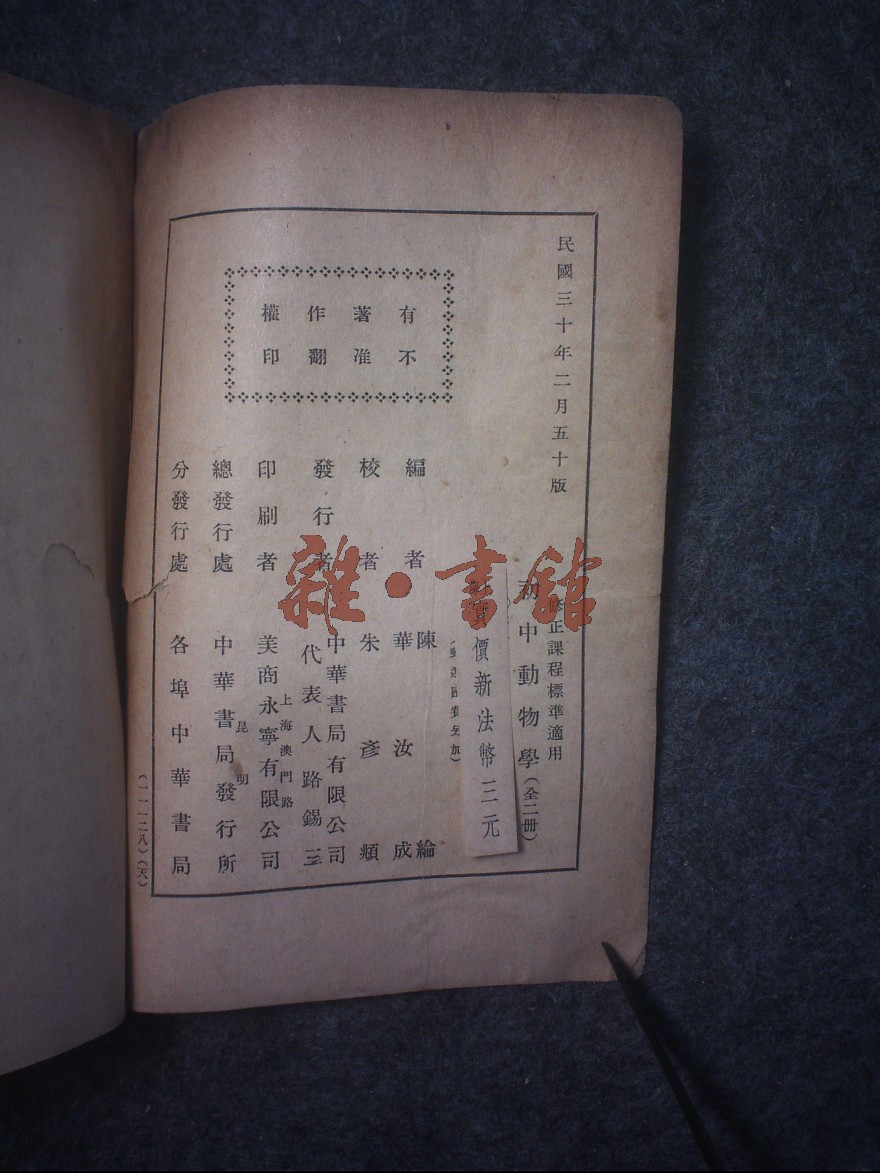 民國三十年二月五十版
修正課程標準適用
初中動物學（全二册）
實價新法幣三元
有不
著准
作翻
權印
編者
陳綸
華汝成
校者
朱彥頫
發行者
中華書局有限公司
代表人路錫三
印刷者
上海澳門路
美商永寧有限公司
總發行處
昆明
中華書局發行所
分發行處
各埠中華書局
（一一一二八）（天）
雜·書館